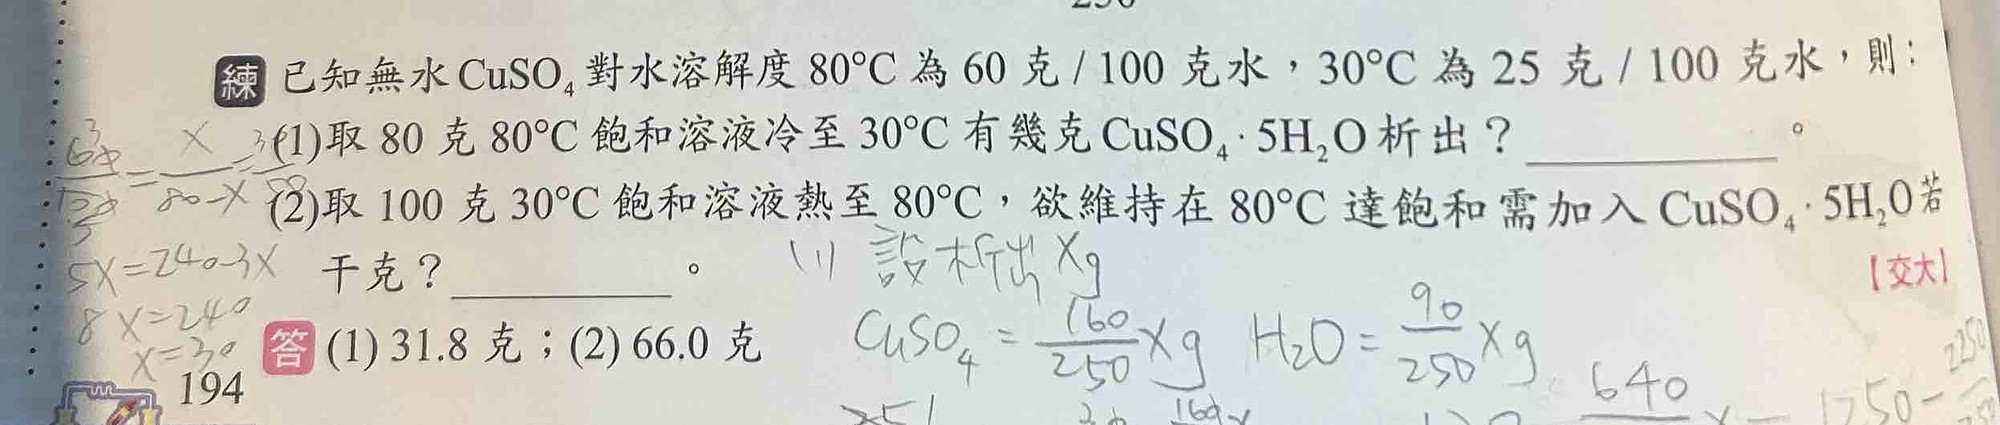 練 已知無水 CuSO₄ 對水溶解度 80°C 為 60 克 / 100 克水,30°C 為 25 克 / 100 克水,則:
(1)取 80 克 80°C 飽和溶液冷至 30°C 有幾克 CuSO₄·5H₂O 析出?________。
(2)取 100 克 30°C 飽和溶液熱至 80°C,欲維持在 80°C 達飽和需加入 CuSO₄·5H₂O若
干克?________。
【交大】
答 (1) 31.8 克;(2) 66.0 克
194
= X/80-X =
5X=240-3X
8X=240
X=30
(1) 設析出 Xg
CuSO₄ = 160/250 X g H₂O = 90/250 X g
640